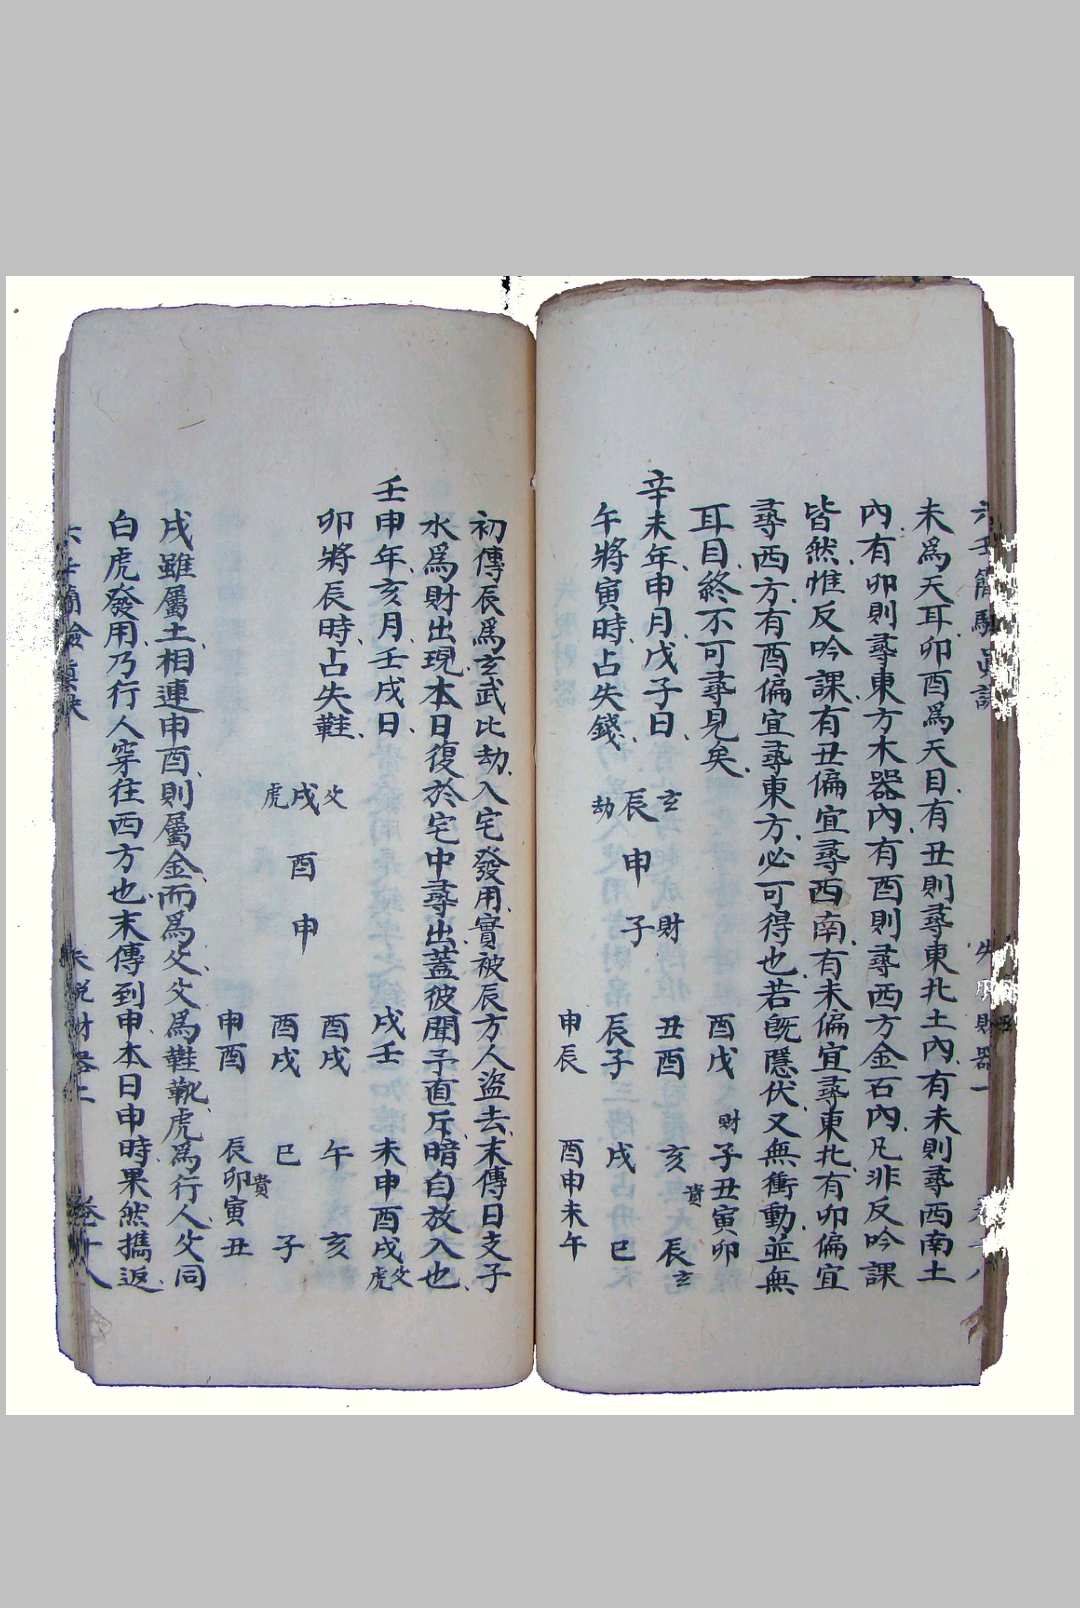 未爲天耳卯酉爲天目有丑則尋東北土內有未則尋西南土
內有卯則尋東方木器內有酉則尋西方金石內凡非反吟課
皆然惟反吟課有丑偏宜尋西南有未偏宜尋東北有卯偏宜
尋西方有酉偏宜尋東方必可得也若既隱伏又無衝動並無
耳目終不可尋見矣
辛未年申月戊子日
午將寅時占失錢
玄
辰 申 子
劫 財
酉戌 財 子丑寅卯
丑酉 亥 貴 辰玄
辰子 戌 巳
申辰 酉申未午
初傳辰爲玄武比劫入宅發用實被辰方人盜去末傳日支子
水爲財出現本日復於宅中尋出蓋彼聞予直斥暗自放入也
壬申年亥月壬戌日
卯將辰時占失鞋
虎戌父
酉
申
戌壬 未申酉戌父虎
酉戌 午 亥
酉戌 巳 子
申酉 辰卯貴寅丑
戌雖屬土相連申酉則屬金而爲父父爲鞋靴虎爲行人父同
白虎發用乃行人穿往西方也末傳到申本日申時果然攜返
失脫財器二
卷十八